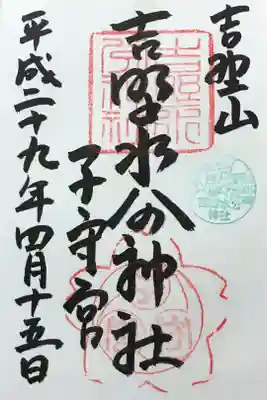 吉野山
吉野水分神社
子守宮
平成二十九年四月十五日
神社